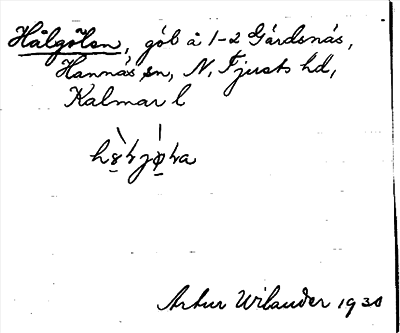 Hålgölen, göl å 1-2 Gårdsnäs,
Hannäs sn, N. Tjusts hd,
Kalmar l
Artur Wilander 1930